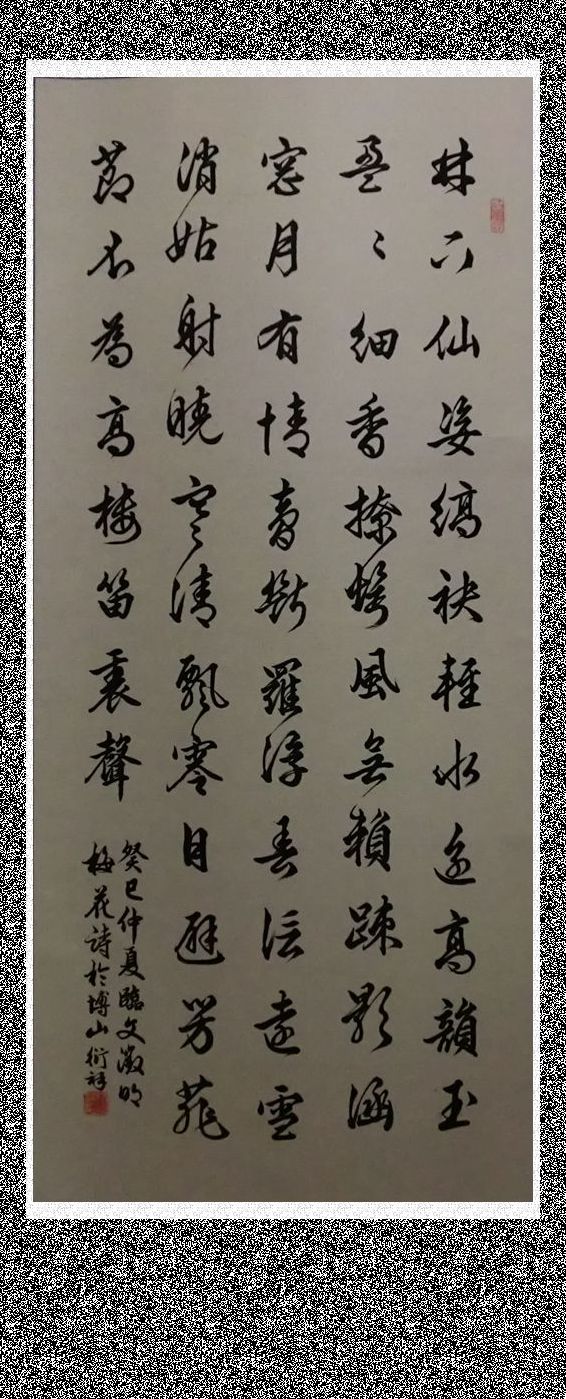 林下仙姿縞袂輕水邊高韻玉
盈〻細香撩鬢風無賴疎影涵
窓月有情夢斷羅浮春信遠雪
消姑射曉寒清飄零自避芳菲
節不為高樓笛裏聲
癸巳仲夏臨文徵明
梅花詩於博山衍祥